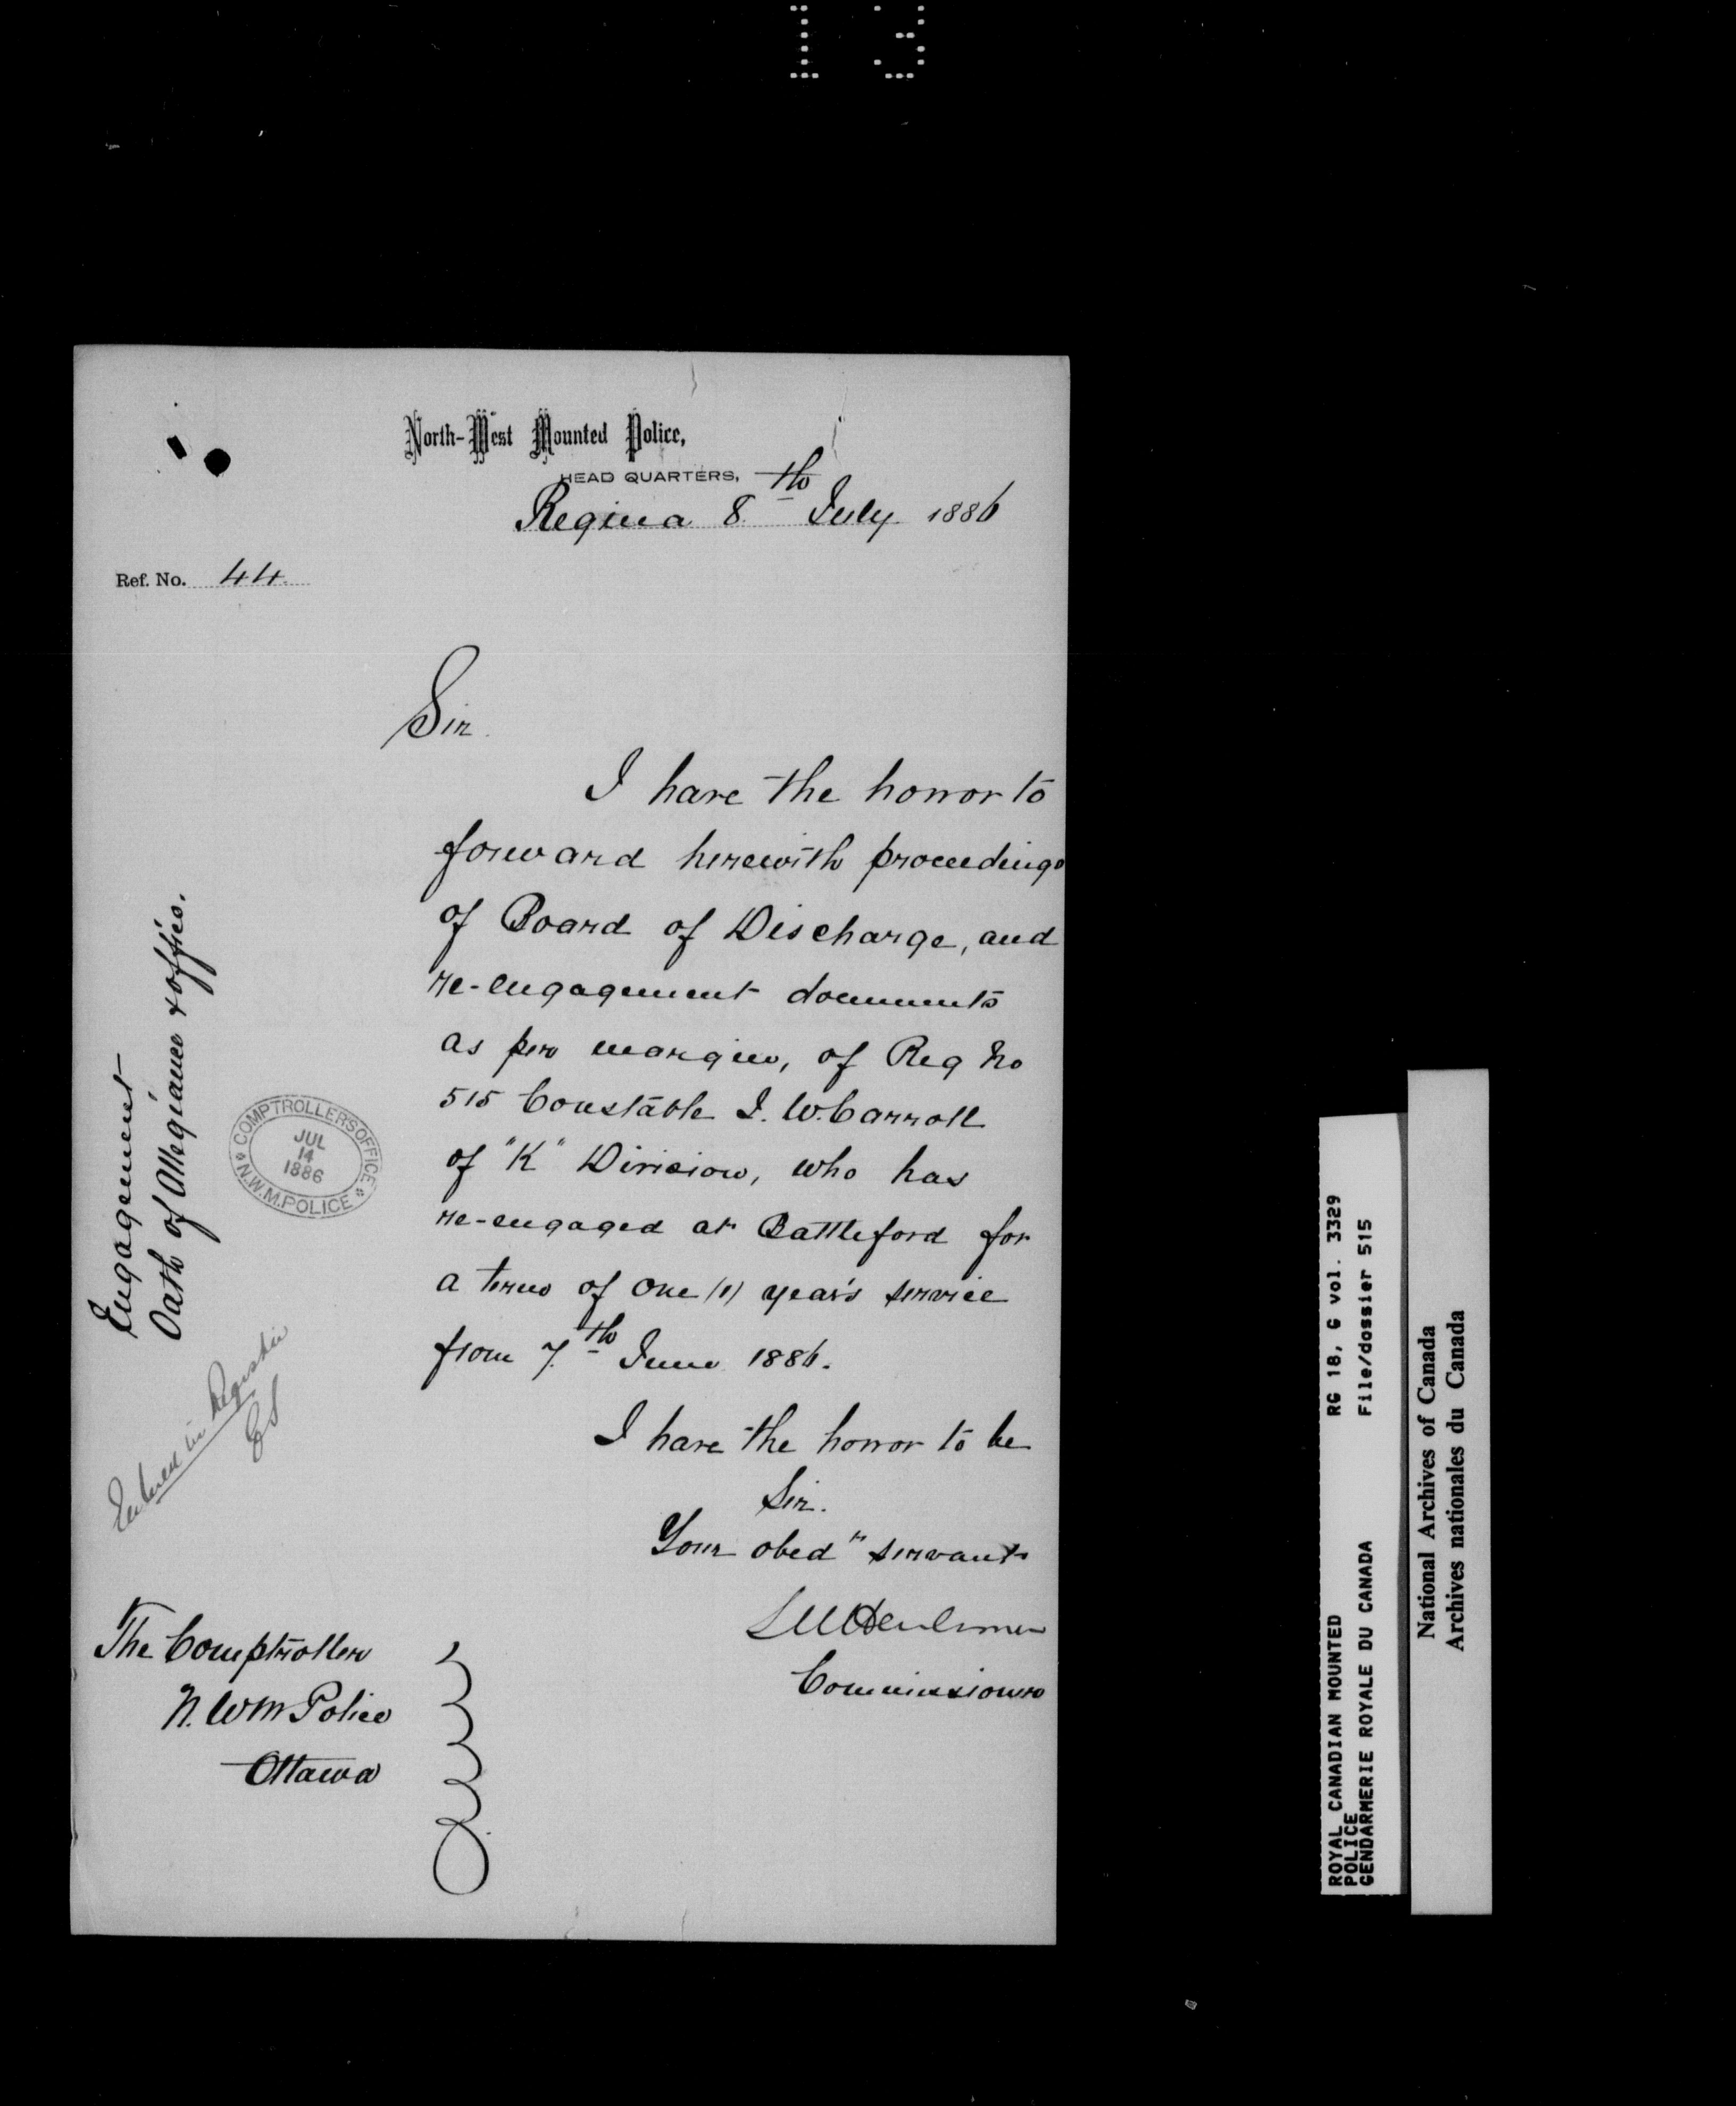 13
North-West Mounted Police,
HEAD QUARTERS,
Regina 8th July 1886
Ref. No. 44
Sir
I have the honor to
forward herewith proceedings
of Board of Discharge, and
re-engagement documents
as per margin, of Reg No
515 Constable J. W. Carroll
of "K" Division, who has
re-engaged at Battleford for
a term of one (1) year's service
from 7th June 1886.
I have the honor to be
Sir.
Your obedt servant
Commissioner
The Comptroller
N. W M Police
Ottawa
Engagement
Oath of Allegiance & office.
COMPTROLLERS OFFICE
JUL
14
1886
N.W.M. POLICE
Entered in Register
ROYAL CANADIAN MOUNTED RG 18, G vol. 3329
POLICE
GENDARMERIE ROYALE DU CANADA File/dossier 515
National Archives of Canada
Archives nationales du Canada